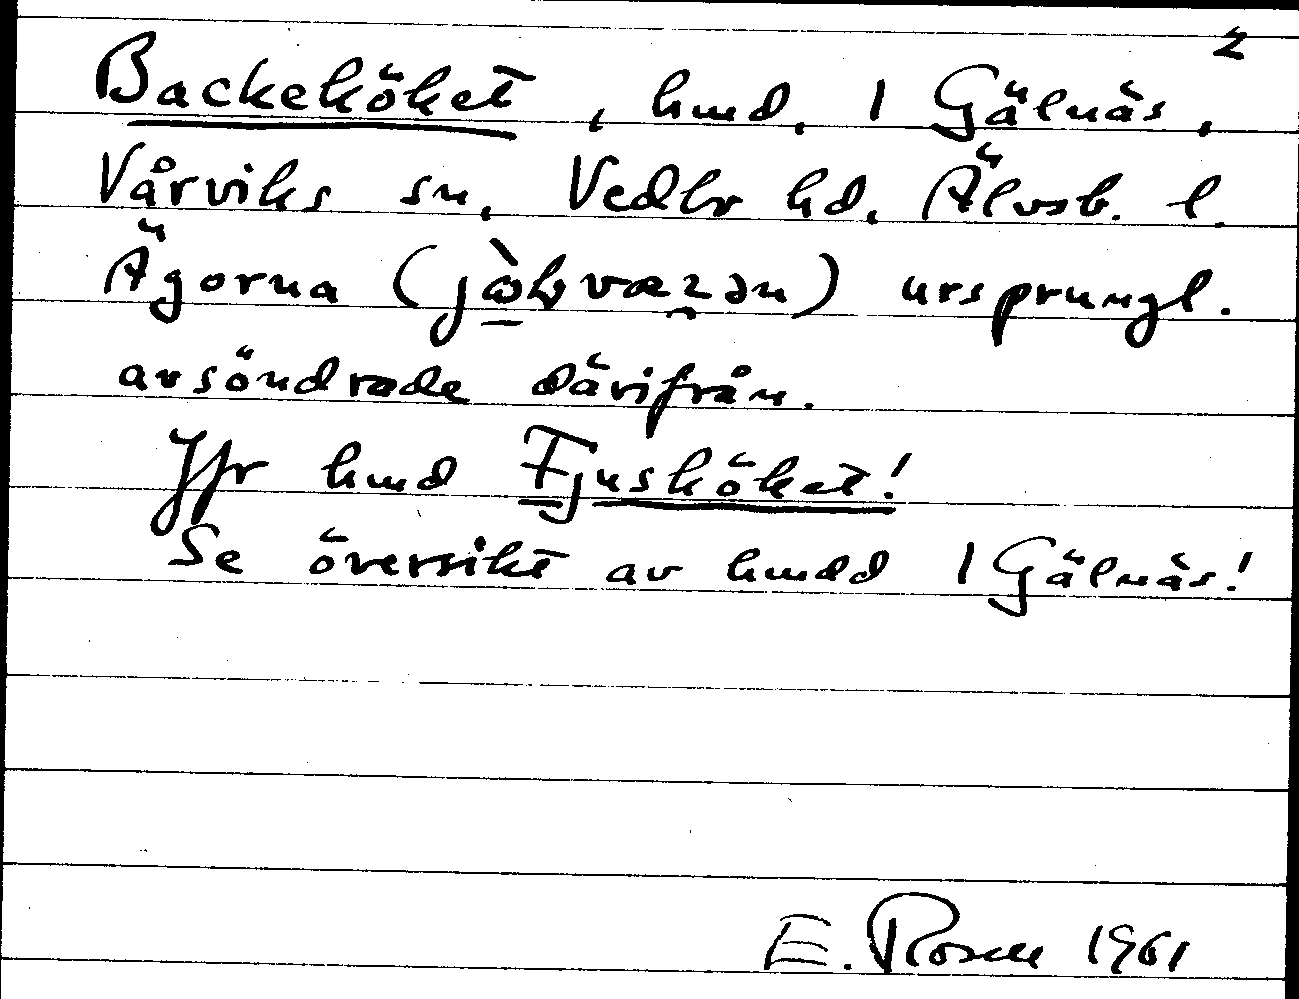 2
Backeköket, hmd, 1 Gälnäs,
Vårviks sn, Vedbo hd, Älvsb. l.
Ägorna ( ) ursprungl.
avsöndrade därifrån.
Jfr hmd Fjusköket!
Se översikt av hmdd 1 Gälnäs!
E. Rosell 1961